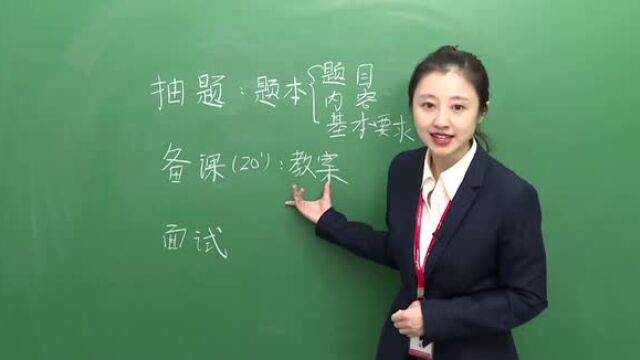 抽题:题本{题目
内容
基本要求
备课(20'):教案
面试